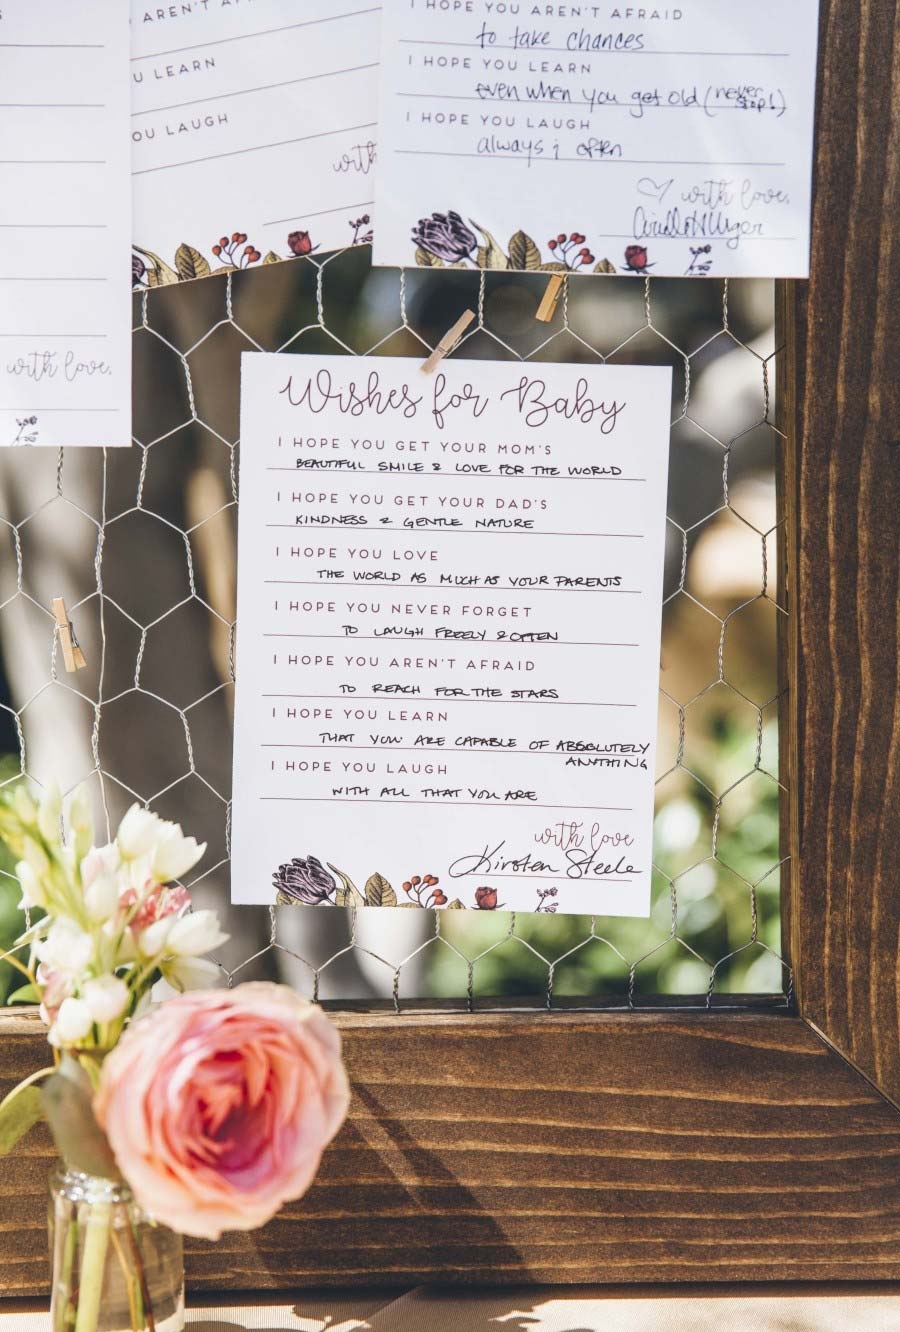 with love,
AREN'T AFRAID
U LEARN
OU LAUGH
with
I HOPE YOU AREN'T AFRAID
to take chances
I HOPE YOU LEARN
even when you get old (never stop!)
I HOPE YOU LAUGH
always & often
with love,
Wishes for Baby
I HOPE YOU GET YOUR MOM'S
BEAUTIFUL SMILE & LOVE FOR THE WORLD
I HOPE YOU GET YOUR DAD'S
KINDNESS & GENTLE NATURE
I HOPE YOU LOVE
THE WORLD AS MUCH AS YOUR PARENTS
I HOPE YOU NEVER FORGET
TO LAUGH FREELY & OFTEN
I HOPE YOU AREN'T AFRAID
TO REACH FOR THE STARS
I HOPE YOU LEARN
THAT YOU ARE CAPABLE OF ABSOLUTELY
ANYTHING
I HOPE YOU LAUGH
WITH ALL THAT YOU ARE
with love
Kirsten Steele